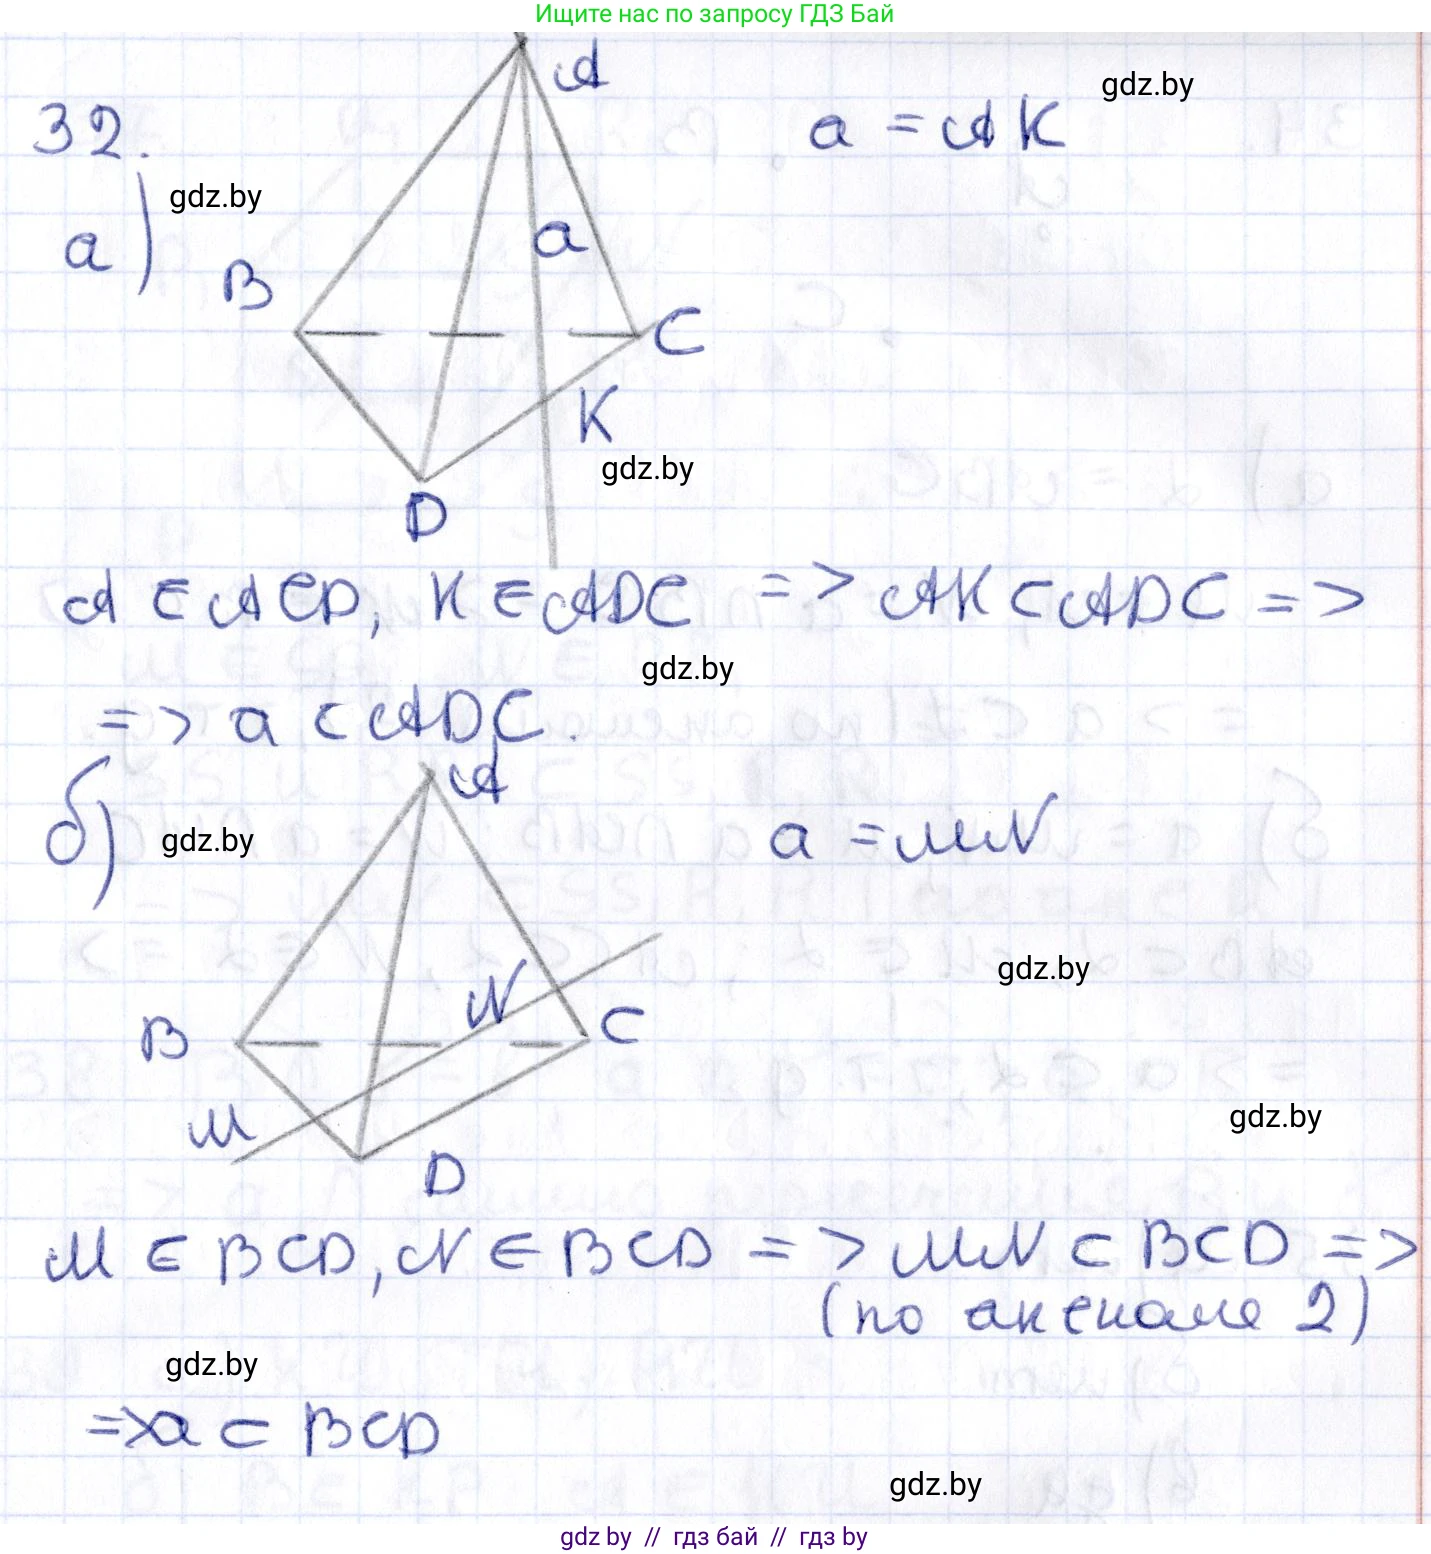 Ищите нас по запросу ГДЗ Бай
A
gdz.by
32.
a = AK
а)
gdz.by
a
B
C
K
gdz.by
D
A ∈ ACD, K ∈ ADC => AK ⊂ ADC =>
gdz.by
=> a ⊂ ADC.
б)
A
gdz.by
a = MN
gdz.by
N
B
C
M
gdz.by
D
M ∈ BCD, N ∈ BCD => MN ⊂ BCD =>
(по аксиоме 2)
gdz.by
=> a ⊂ BCD
gdz.by
gdz by // гдз бай // гдз by